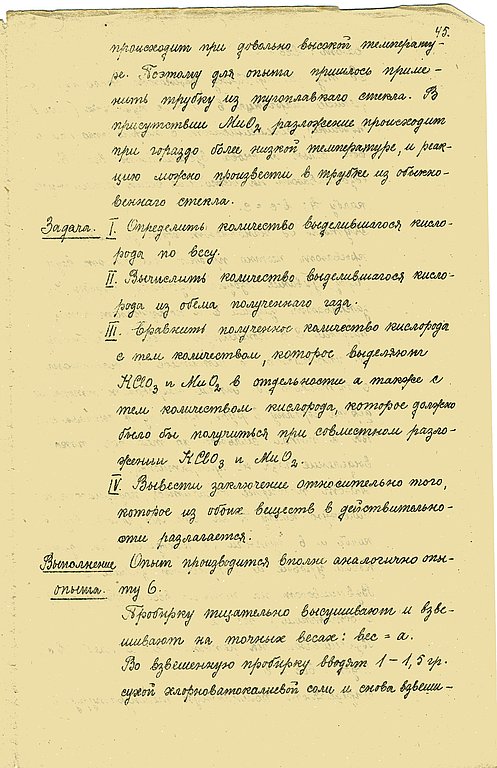 45.
происходит при довольно высокой температу-
ре. Поэтому для опыта пришлось приме-
нить трубку из тугоплавкаго стекла. В
присутствии MnO2 разложение происходит
при гораздо более низкой температуре, и реак-
цию можно произвести в трубке из обыкно-
веннаго стекла.
Задача. I. Определить количество выделившагося кисло-
рода по весу.
II. Вычислить количество выделившагося кисло-
рода из обема полученнаго газа.
III. Сравнить полученное количество кислорода
с тем количеством, которое выделяют
KClO3 и MnO2 в отдельности а также с
тем количеством кислорода, которое должно
было бы получиться при совместном разло-
жении KClO3 и MnO2
IV. Вывести заключение относительно того,
которое из обоих веществ в действительно-
сти разлагается.
Выполнение Опыт производится вполне аналогично опы-
опыта. ту 6.
Пробирку тщательно высушивают и взве-
шивают на точных весах: вес = a.
Во взвешенную пробирку вводят 1 – 1,5 гр.
сухой хлорноватокалиевой соли и снова взвеши-